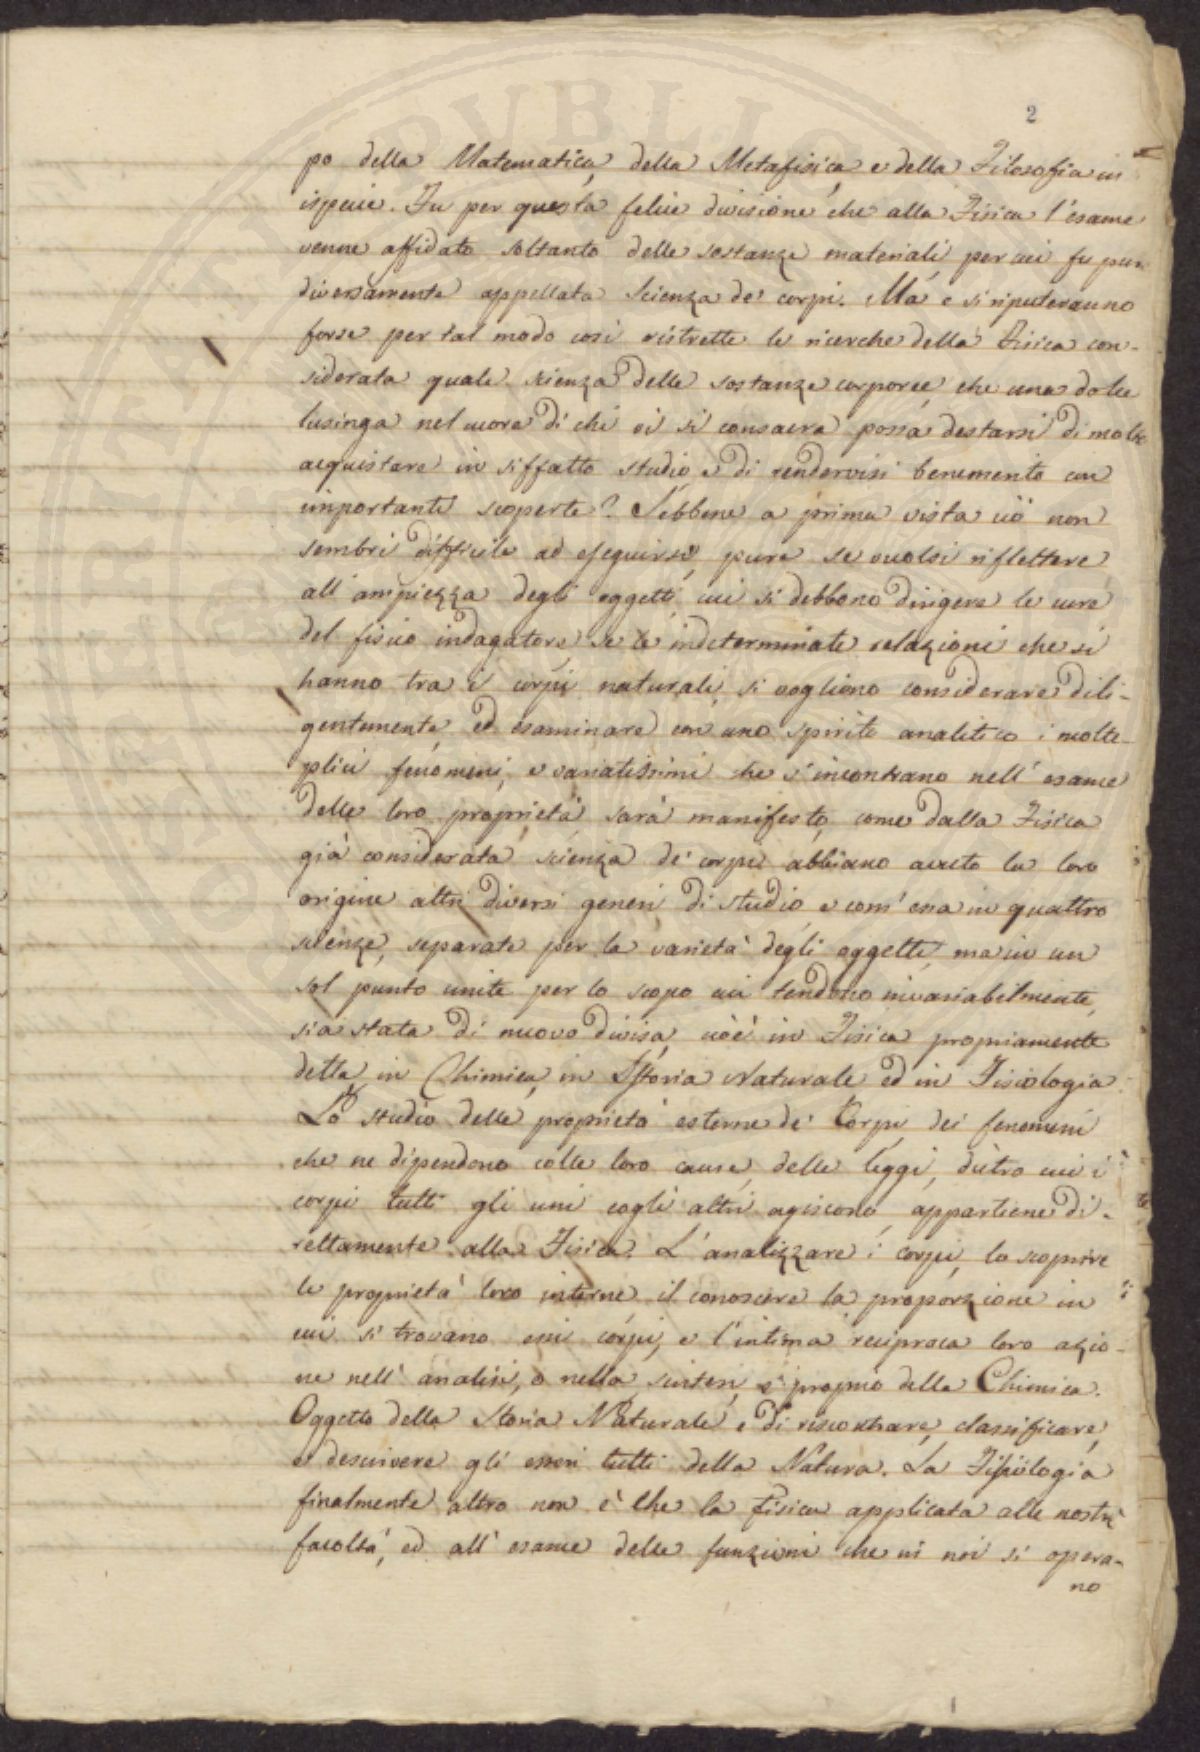 2
po della Matematica, della Metafisica, e della Filosofia in
ispecie. Fu per questa felice divisione che alla Fisica l'esame
venne affidato soltanto delle sostanze materiali, per cui fu pur
diversamente appellata Scienza de' corpi. Ma e si riputeranno
forse per tal modo così ristrette le ricerche della Fisica con-
siderata quale scienza delle sostanze corporee, che una dolce
lusinga nel cuore di chi vi si consacra possa destarsi di molto
acquistare in siffatto studio, e di rendervisi benemerito con
importanti scoperte? Sebbene a prima vista ciò non
sembri difficile ad eseguirsi, pure se vuolsi riflettere
all'ampiezza degli oggetti, cui si debbono dirigere le cure
del fisico indagatore, se le indeterminate relazioni che si
hanno tra i corpi naturali, si vogliono considerare dili-
gentemente, ed esaminare con uno spirito analitico i molte-
plici fenomeni, e variatissimi che s'incontrano nell'esame
delle loro proprietà sarà manifesto, come dalla Fisica
già considerata scienza de' corpi abbiano avuto la loro
origine altri diversi generi di studio, e com'essa in quattro
scienze, separate per la varietà degli oggetti, ma in un
sol punto unite per lo scopo cui tendono invariabilmente,
sia stata di nuovo divisa, cioè in Fisica propriamente
detta, in Chimica, in Istoria Naturale ed in Fisiologia.
Lo studio delle proprietà esterne de' Corpi, dei fenomeni
che ne dipendono colle loro cause, delle leggi, dietro cui i
corpi tutti gli uni cogli altri agiscono, appartiene di-
rettamente alla Fisica. L'analizzare i corpi, lo scoprire
le proprietà loro interne il conoscere la proporzione in
cui si trovano essi corpi, e l'intima reciproca loro azio-
ne nell'analisi, o nella sintesi, è proprio della Chimica.
Oggetto della Storia Naturale è di riscontrare, classificare,
e descrivere gli esseri tutti della Natura. La Fisiologia
finalmente altro non è che la Fisica applicata alle nostre
facoltà, ed all'esame delle funzioni che in noi si opera-
no